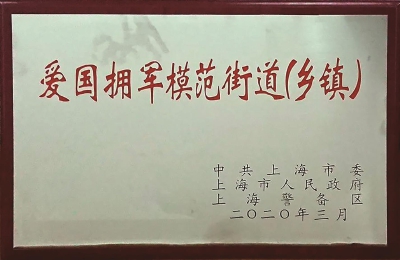 爱国拥军模范街道(乡镇)
中共上海市委
上海市人民政府
上海警备区
二〇二〇年三月